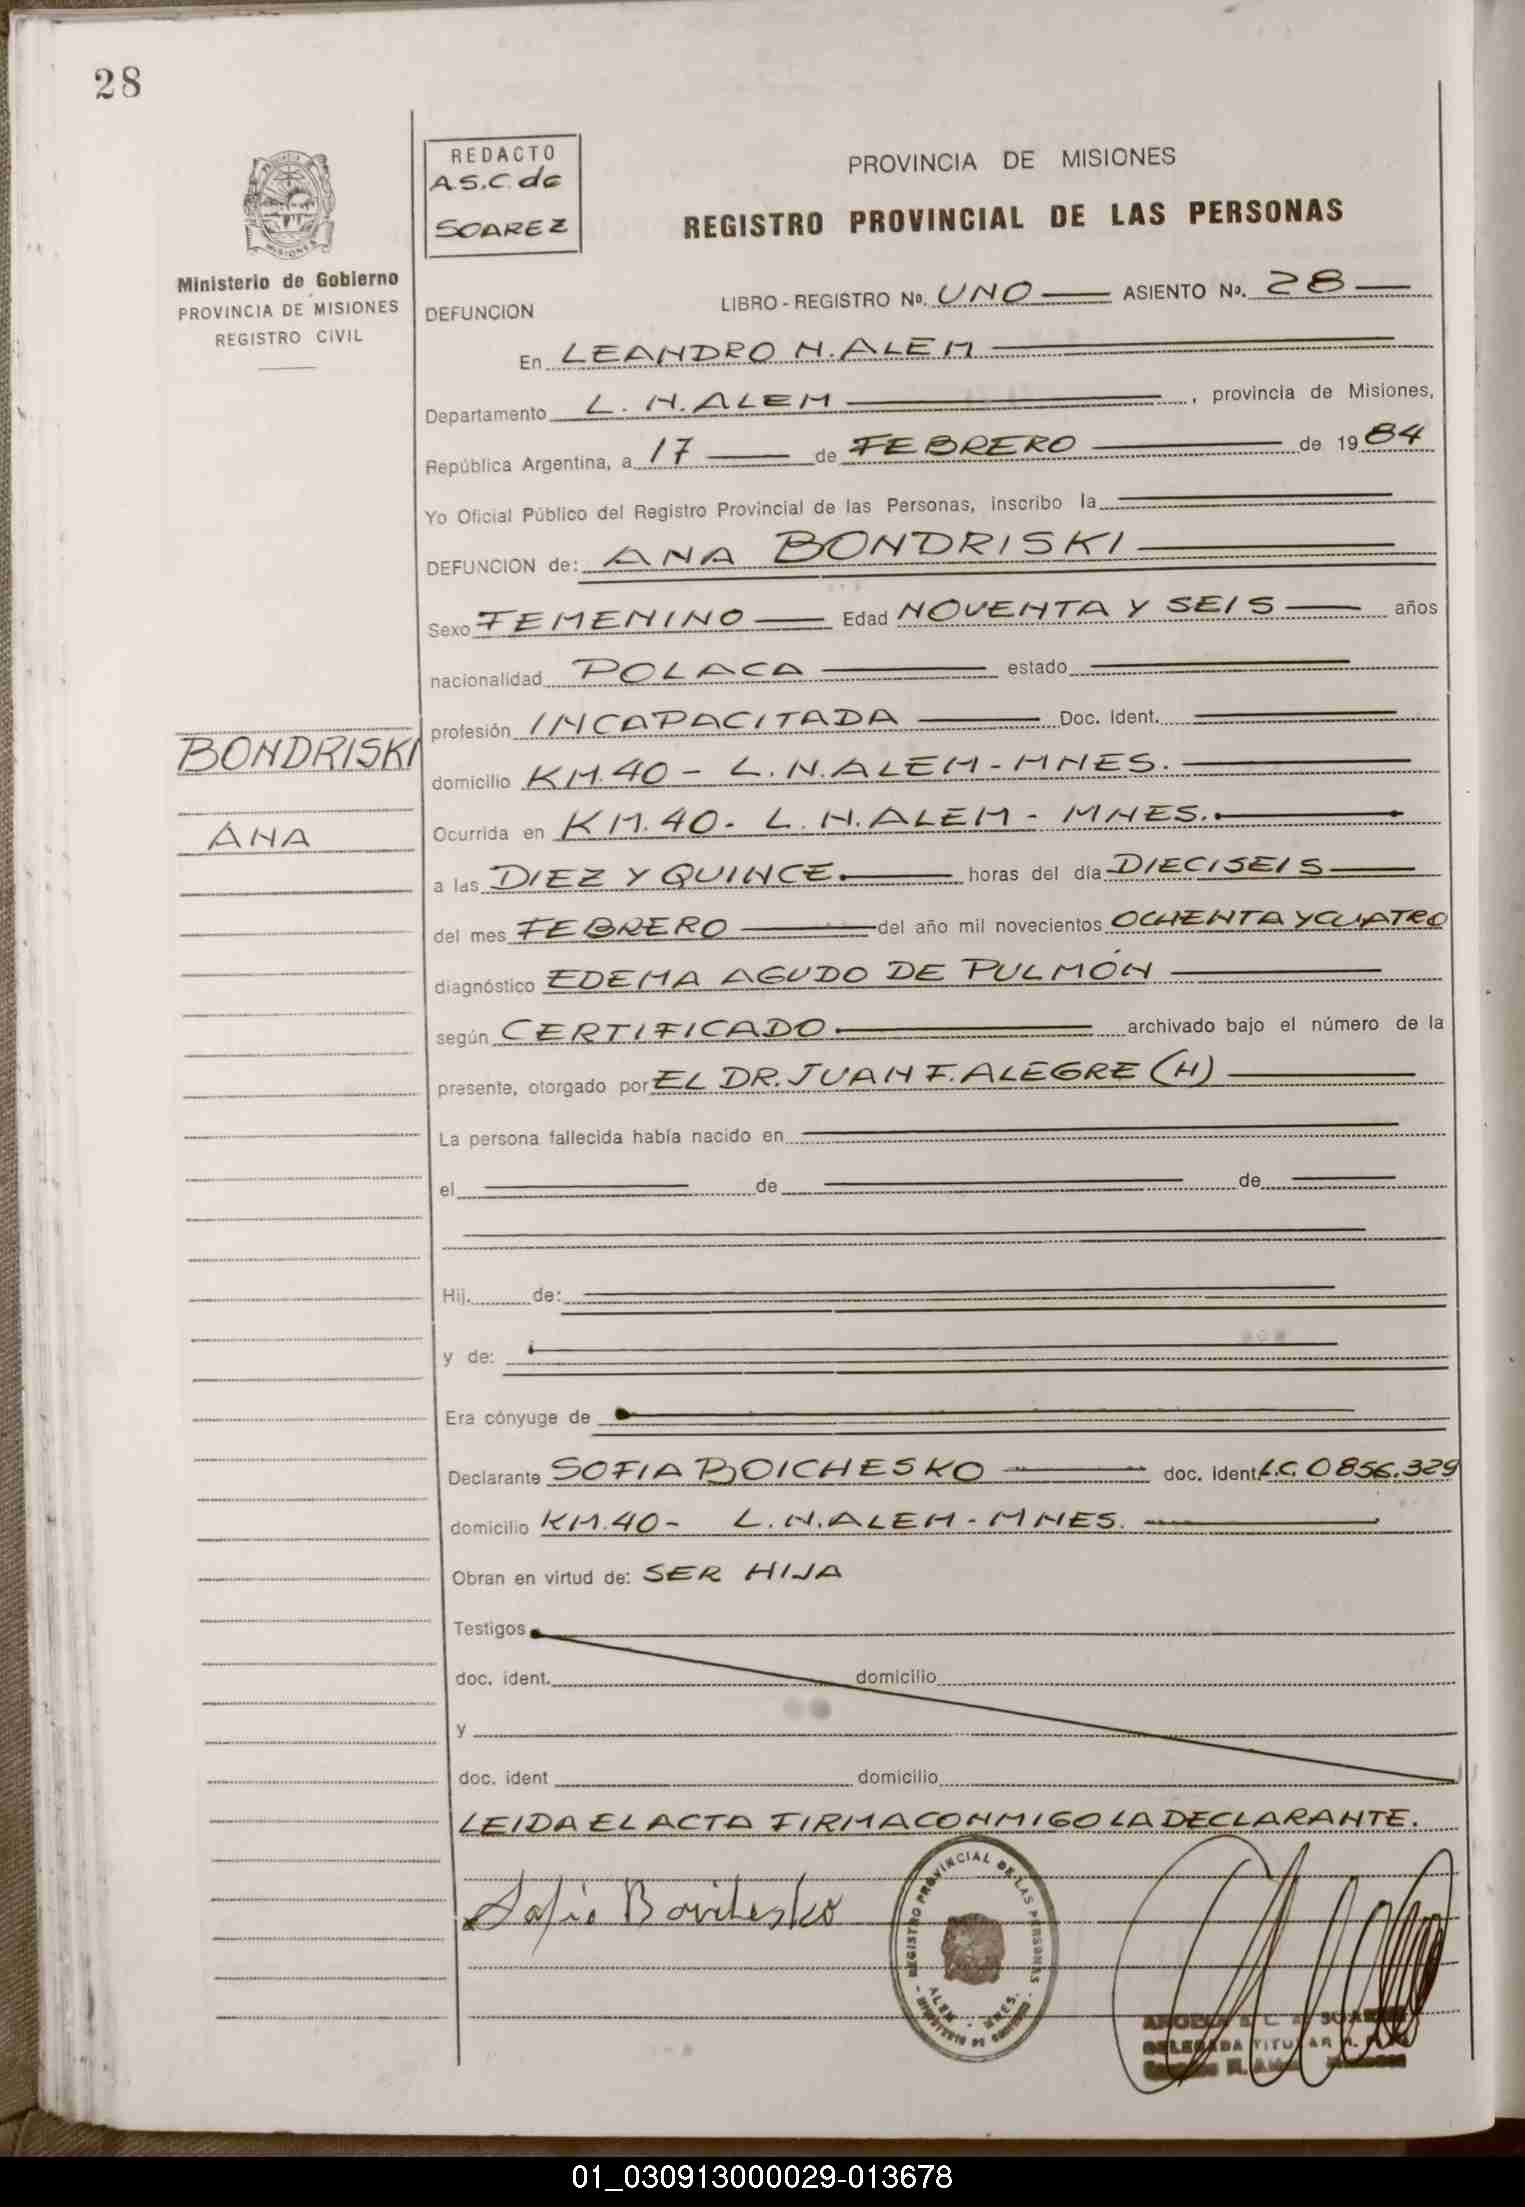 28
REDACTO
A.S.C. de
SOAREZ
PROVINCIA DE MISIONES
REGISTRO PROVINCIAL DE LAS PERSONAS
MISIONES
Ministerio de Gobierno
PROVINCIA DE MISIONES
REGISTRO CIVIL
DEFUNCION LIBRO - REGISTRO Nº. UNO ASIENTO Nº. 28
En LEANDRO N. ALEM
Departamento L. N. ALEM , provincia de Misiones,
República Argentina, a 17 de FEBRERO de 1984
Yo Oficial Público del Registro Provincial de las Personas, inscribo la
DEFUNCION de: ANA BONDRISKI
Sexo FEMENINO Edad NOVENTA Y SEIS años
nacionalidad POLACA estado
profesión INCAPACITADA Doc. Ident.
BONDRISKI
ANA
domicilio KM. 40 - L. N. ALEM - MNES.
Ocurrida en KM. 40. L. N. ALEM - MNES.
a las DIEZ Y QUINCE horas del día DIECISEIS
del mes FEBRERO del año mil novecientos OCHENTA Y CUATRO
diagnóstico EDEMA AGUDO DE PULMÓN
según CERTIFICADO archivado bajo el número de la
presente, otorgado por EL DR. JUAN F. ALEGRE (H)
La persona fallecida había nacido en
el de de
Hij. de:
y de:
Era cónyuge de
Declarante SOFIA BOICHESKO doc. ident L.C. 0856.329
domicilio KM. 40 - L. N. ALEM - MNES.
Obran en virtud de: SER HIJA
Testigos
doc. ident. domicilio
y
doc. ident domicilio
LEIDA EL ACTA FIRMA CONMIGO LA DECLARANTE.
Sofia
REGISTRO PROVINCIAL DE LAS PERSONAS
ALEM - MNES.
MINISTERIO DE GOBIERNO
DELEGADA TITULAR
01_030913000029-013678